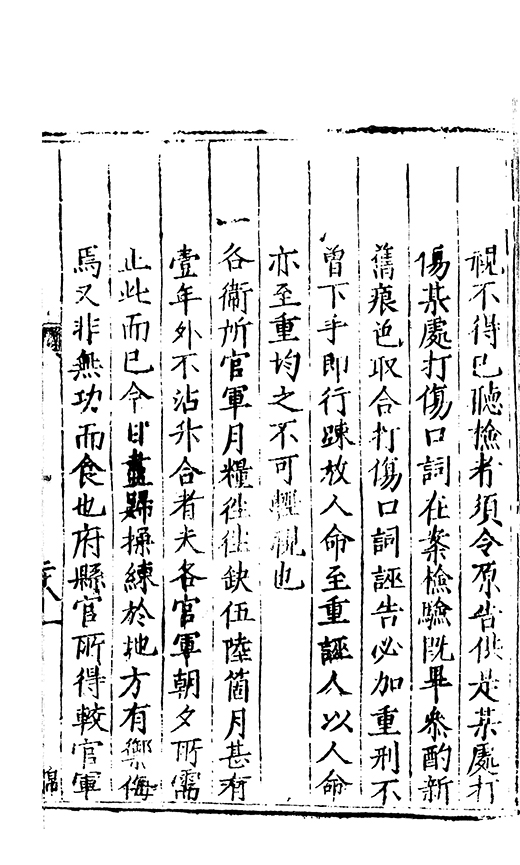 視不得已聽檢者須令原告供是某處打
傷某處打傷口詞在案檢驗既畢參酌新
舊痕色取合打傷口詞誣告必加重刑不
曾下手即行踈放人命至重誣人以人命
亦至重均之不可輕視也
一各衞所官軍月糧徃徃缺伍陸箇月甚有
壹年外不沾升合者夫各官軍朝夕所需
止此而已今日盡歸操練於地方有禦侮
焉又非無功而食也府縣官所得較官軍